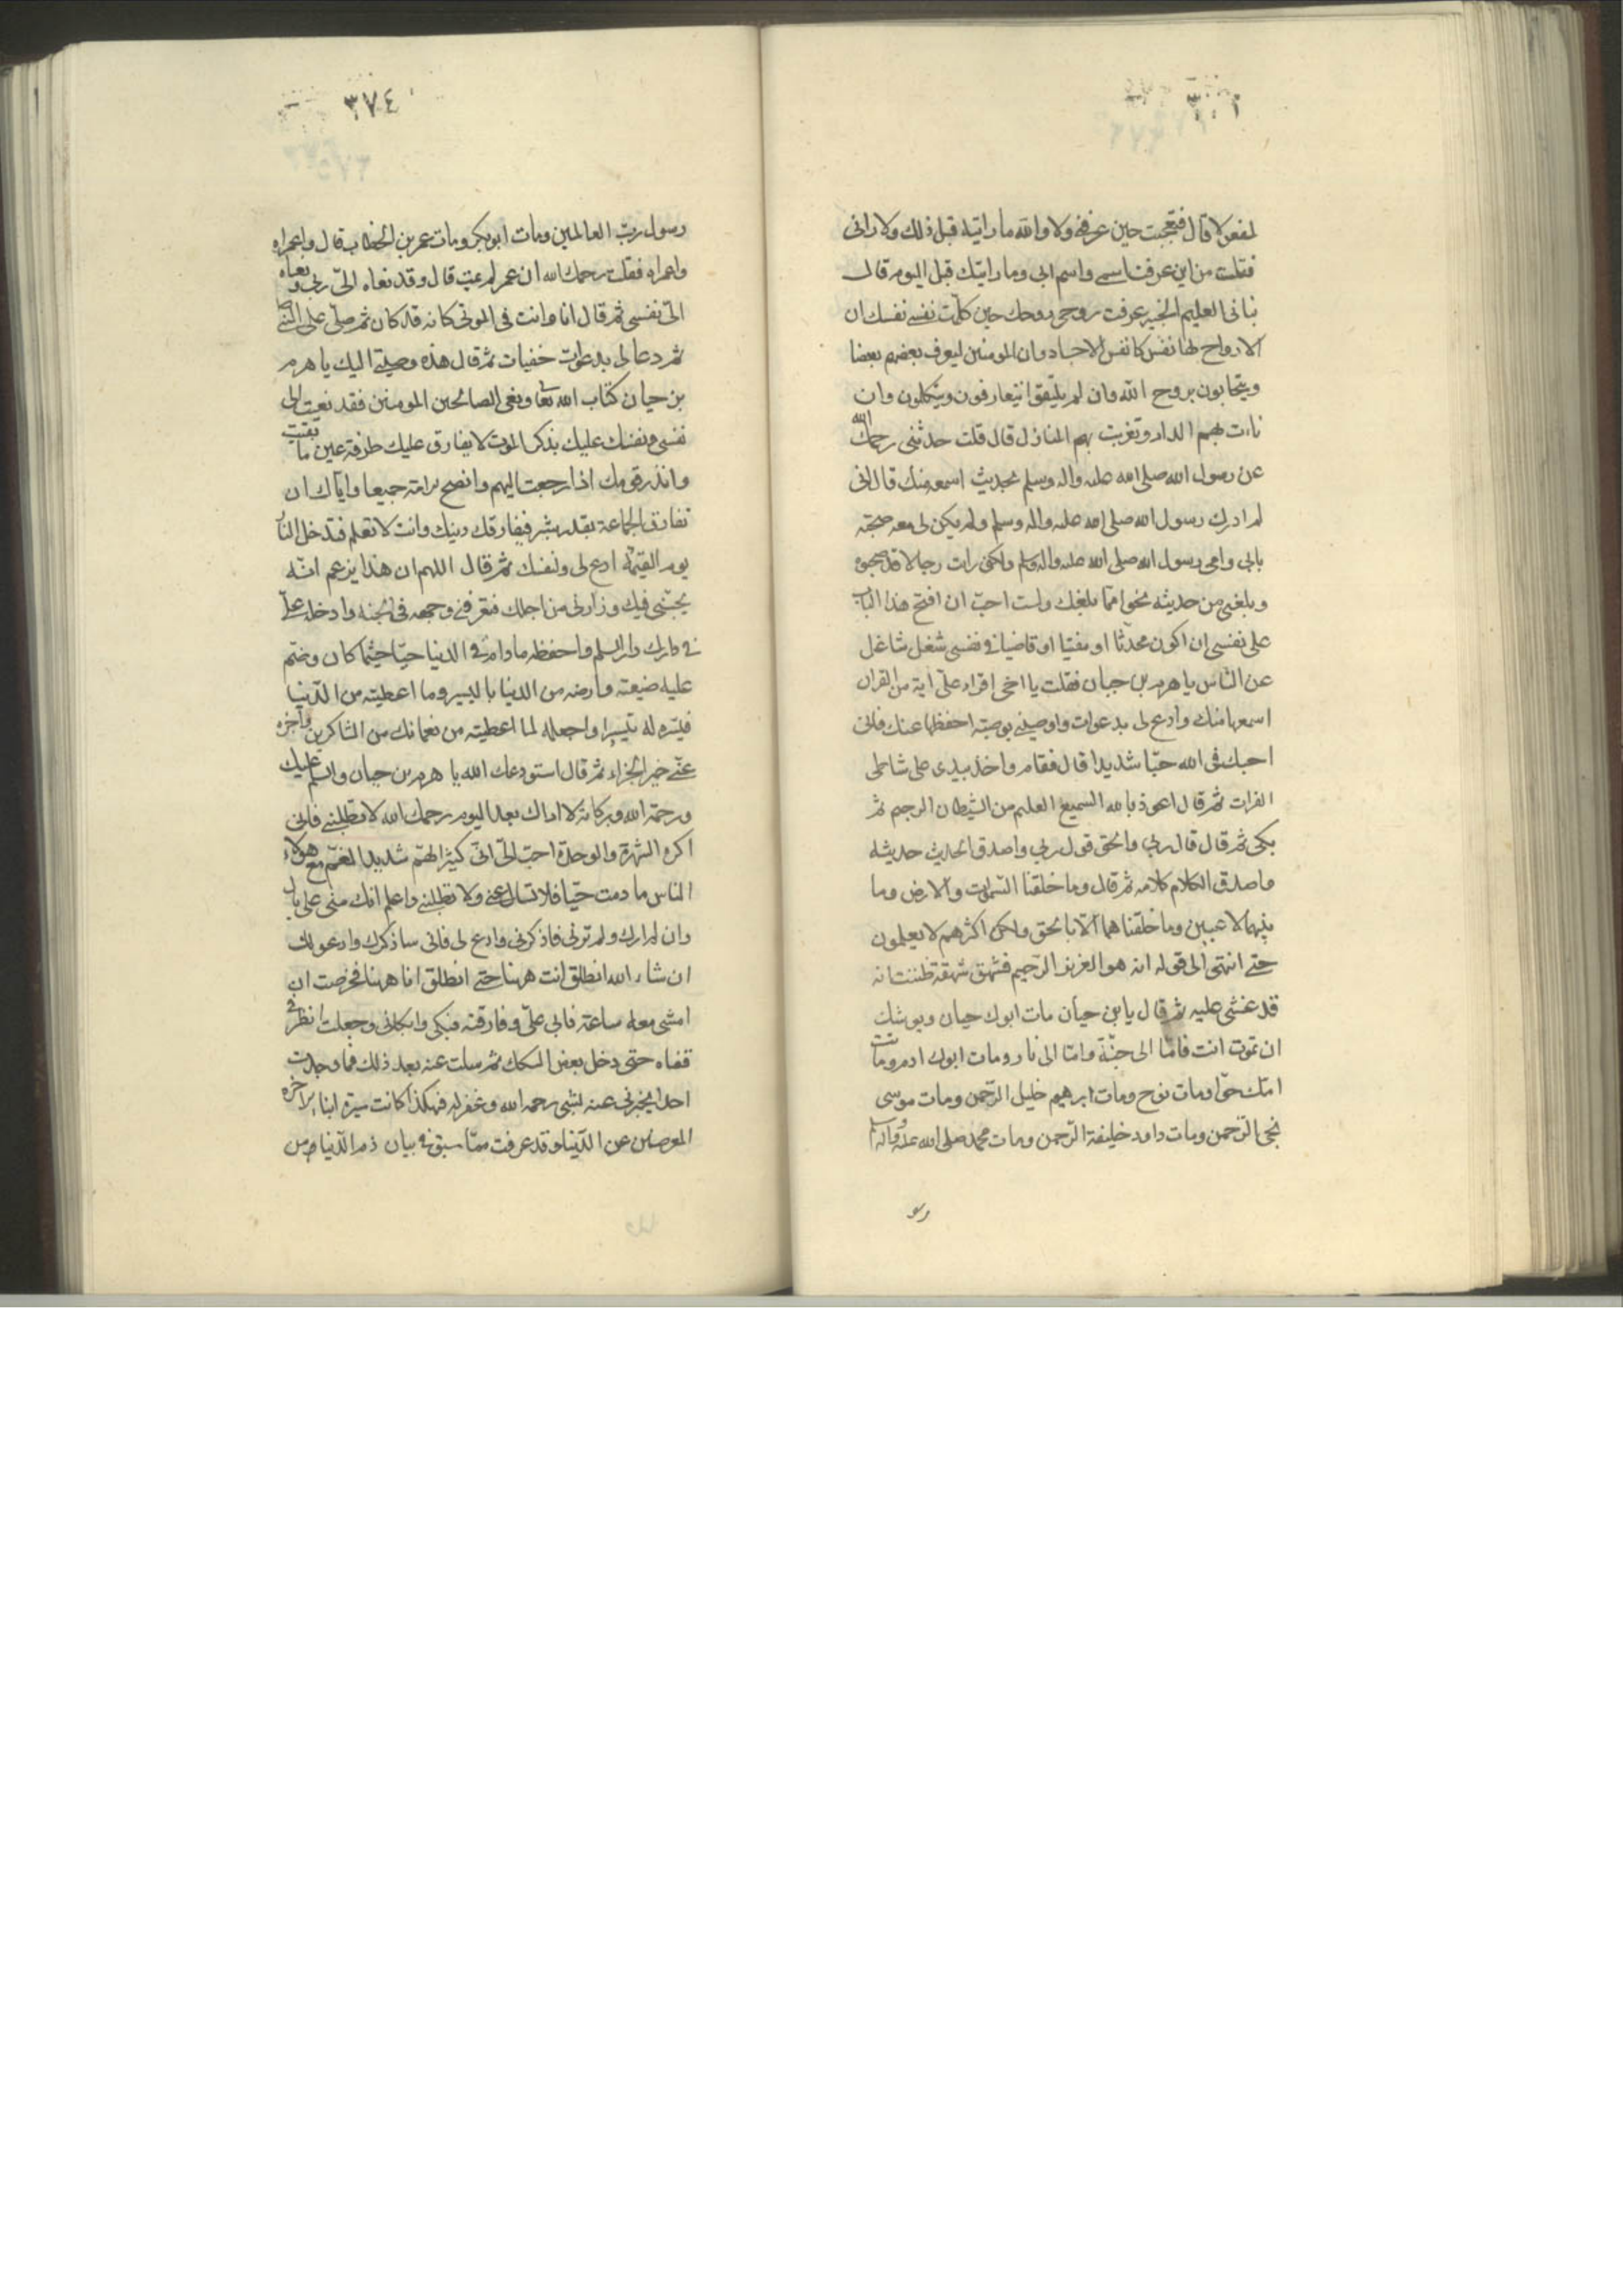 لمفعولا قال فتعجبت حين عرفنى ولا والله ما رايته قبل ذلك ولا رانى
فقلت من اين عرفت اسمى واسم ابى وما رايتك قبل اليوم قال
نبانى العليم الخبير عرفت روحى روحك حين كلمت نفسى نفسك ان
الارواح لها نفس كانفس الاجساد وان المومنين ليعرف بعضهم بعضا
ويتحابون بروح الله وان لم يلتقوا يتعارفون ويتكلمون وان
ناءت بهم الدار وتغربت بهم المنازل قال قلت حدثنى رحمك الله
عن رسول الله صلى الله عليه واله وسلم بحديث اسمعه منك قال انى
لم ادرك رسول الله صلى الله عليه واله وسلم ولم يكن لى معه صحبة
بابى وامى رسول الله صلى الله عليه واله وسلم ولكنى رايت رجالا قد صحبوه
وبلغنى من حديثه نحوا مما بلغك ولست احب ان افتح هذا الباب
على نفسى ان اكون محدثا او مفتيا او قاضيا فى نفسى شغل شاغل
عن الناس يا هرم بن حيان فقلت يا اخى اقراء على اية من القران
اسمعها منك وادع لى بدعوات واوصينى بوصية احفظها عنك فانى
احبك فى الله حبا شديدا قال فقام واخذ بيدى على شاطى
الفرات ثم قال اعوذ بالله السميع العليم من الشيطان الرجيم ثم
بكى ثم قال قال ربى والحق قول ربى واصدق الحديث حديثه
واصدق الكلام كلامه ثم قال وما خلقنا السموات والارض وما
بينهما لاعبين وما خلقناهما الا بالحق ولكن اكثرهم لا يعلمون
حتى انتهى الى قوله انه هو العزيز الرحيم فشهق شهقة ظننت انه
قد غشى عليه ثم قال يا بن حيان مات ابوك حيان ويوشك
ان تموت انت فاما الى جنة واما الى نار ومات ابوك ادم وماتت
امك حوا ومات نوح ومات ابرهيم خليل الرحمن ومات موسى
نجى الرحمن ومات داود خليفة الرحمن ومات محمد صلى الله عليه واله
رسو
٣٧٤
رسول رب العالمين ومات ابو بكر ومات عمر بن الخطاب قال واعمراه
واعمراه فقلت رحمك الله ان عمر لم يمت قال وقد نعاه الى ربى ونعاه
الى نفسى ثم قال انا وانت فى الموتى كانه قد كان ثم صلى على النبى
ثم دعا لى بدعوات خفيات ثم قال هذه وصيتى اليك يا هرم
بن حيان كتاب الله تعا ونعى الصالحين المومنين فقد نعيت الى
نفسى ونفسك عليك بذكر الموت لا يفارق عليك طرفة عين ما بقيت
وانذر قومك اذا رجعت اليهم وانصح لامة جميعا واياك ان
تفارق الجماعة بقدر شبر فيفارقك دينك وانت لا تعلم فتدخل النار
يوم القيمة ادع لى ولنفسك ثم قال اللهم ان هذا يزعم انه
يحبنى فيك وزارنى من اجلك فعرفنى وجهه فى الجنة وادخله على
فى دارك دار السلم واحفظه ما دام فى الدنيا حيا حيثما كان وضم
عليه ضيعته وارضه من الدنيا باليسير وما اعطيته من الدنيا
فيسره له تيسيرا واجعله لما اعطيته من نعمائك من الشاكرين واجزه
عنى خير الجزاء ثم قال استودعك الله يا هرم بن حيان والسلم عليك
ورحمة الله وبركاته لا اراك بعد اليوم رحمك الله لا تطلبنى فانى
اكره الشهرة والوحدة احب الى انى كثير الهم شديد الغم مع هولاء
الناس ما دمت حيا فلا تسال عنى ولا تطلبنى واعلم انك منى على بال
وان لم ارك ولم ترنى فاذكرنى وادع لى فانى ساذكرك وادعو لك
ان شاء الله انطلق انت ههنا حتى انطلق انا ههنا فحرصت ان
امشى معه ساعة فابى على وفارقته فبكى وابكانى وجعلت انظر فى
قفاه حتى دخل بعض السكك ثم سالت عنه بعد ذلك فما وجدت
احدا يخبرنى عنه بشى رحمه الله وغفر له فهكذا كانت سيرة ابناء الاخرة
المعرضين عن الدنيا وقد عرفت مما سبق فى بيان ذم الدنيا ومن